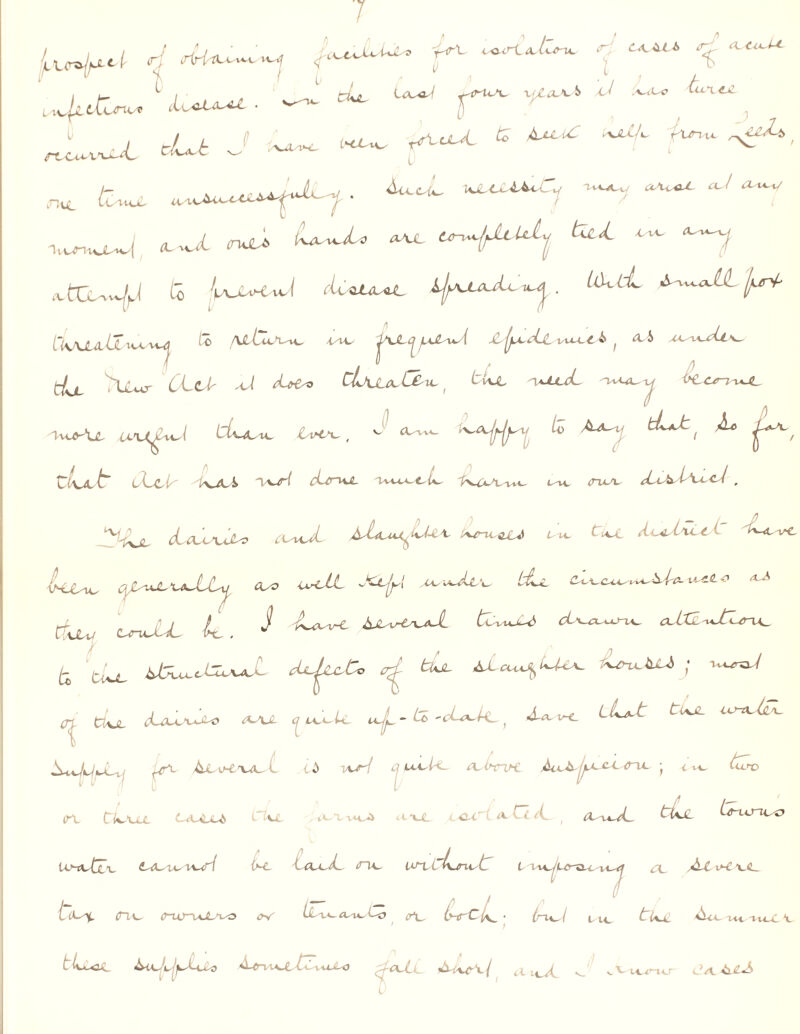 7
prospect of obtaining facilities for isolation of cases of acute
infectious disease. In the last four years it has twice
occurred that I have been forced to seek help from Leeds,
one time unsuccessfully. Such necessity may arise at any
moment, and one's hands are completely tied in any
attempt to prevent disease spreading. With small pox
threatening to return in frequent epidemics, as under
the New Act it does threaten, the need may become
more urgent than ever. I am happy to say that, so far,
that Act has not done much harm in our district.
The dairies and slaughter houses in the district have
been generally as well kept under the circumstances as
they could be. I have several times drawn attention
to the structural defects of the slaughter houses; most
of the dairies are quite up-to-date, save that the water
supply for several is not quite above suspicion; in two
or three cases the farms are isolated, and the town's
water cannot be laid on without imposing a severe
tax on owners or tenants, or both; but in the summer
these supplies sometimes fall short, and I know cases